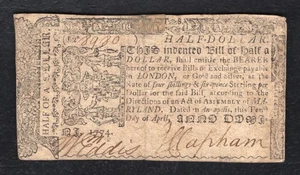 HALF-DOLLAR.
No 1990
THIS indented Bill of Half a
DOLLAR, shall entitle the BEARER
hereof to receive Bills of Exchange payable
in LONDON, or Gold and silver, at the
Rate of four shillings & six-pence Sterling per
Dollar for the said Bill, according to the
Directions of an Act of ASSEMBLY of MA-
RYLAND. Dated in Annapolis, this Ten
Day of April, ANNO DOMINI
1774.
Clapham
HALF OF A DOLLAR.